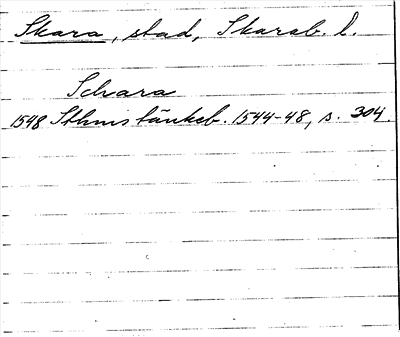 Skara, stad, Skarab. l.
Schara
1548 Sthms tänkeb. 1544-48, s. 304.